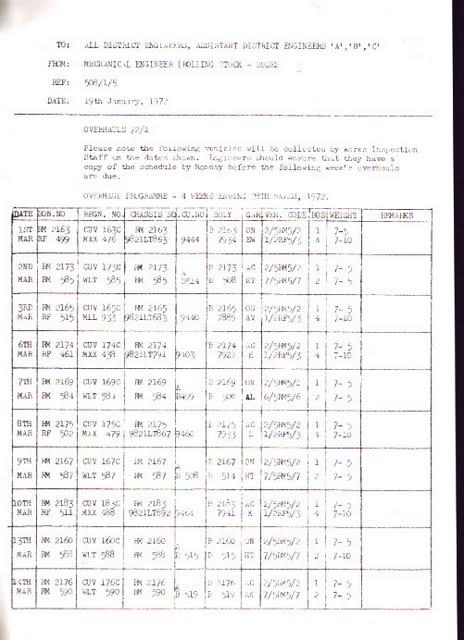 TO: ALL DISTRICT ENGINEERS, ASSISTANT DISTRICT ENGINEERS 'A','B','C'
FROM: MECHANICAL ENGINEER (ROLLING STOCK - BUSES
REF: 508/1/5
DATE: 19th January, 1972
OVERHAULS /2/1
Please note the following vehicles will be collected by Works Inspection
Staff on the dates shown. Engineers should ensure that they have a
copy of the schedule by Monday before the following week's overhauls
are due.
OVERHAUL PROGRAMME - 4 WEEKS ENDING MARCH, 1972.
DATE BON.NO REGN. NO. CHASSIS NO. CU.NO. BODY GAR. VEH. CODE POS WEIGHT REMARKS
1ST RM 2163 CUV 163C RM 2163 B 2163 ON 2/5RM5/2 1 7- 5
MAR RF 499 MXX 476 9821LT863 9444 7934 EW 1/2RF5/3 4 7-10
2ND RM 2173 CUV 173C RM 2173 B 2173 AC 2/5RM5/2 1 7- 5
MAR RM 585 WLT 585 RM 585 B 508 HT 7/5RM5/7 2 7- 5
3RD RM 2165 CUV 165C RM 2165 B 2165 ON 2/5RM5/2 1 7- 5
MAR RF 515 933 9821LT683 9440 7885 AV 1/2RF5/3 4 7-10
6TH RM 2174 CUV 174C RM 2174 B 2174 AC 2/5RM5/2 1 7- 5
MAR RF 461 MXX 438 9821LT791 9403 7921 1/2RF5/3 4 7-10
7TH RM 2169 CUV 169C RM 2169 B 2169 ON 2/5RM5/2 1 7- 5
MAR RM 584 WLT 584 RM 584 B 500 AL 6/5RM5/6 2 7- 5
8TH RM 2175 CUV 175C RM 2175 B 2175 AC 2/5RM5/2 1 7- 5
MAR RF 502 MXX 479 9821LT867 9460 7933 L 1/2RF5/3 4 7-10
9TH RM 2167 CUV 167C RM 2167 B 2167 ON 2/5RM5/2 1 7- 5
MAR RM 587 WLT 587 RM 587 B 508 B 514 HT 7/5RM5/7 2 7- 5
10TH RM 2183 CUV 183C RM 2183 B 2183 AC 2/5RM5/2 1 7- 5
MAR RF 511 MXX 488 9821LT892 9464 7941 K 1/2RF5/3 4 7-10
13TH RM 2160 CUV 160C RM 2160 B 2160 ON 2/5RM5/2 1 7- 5
MAR RM 588 WLT 588 RM 588 B 515 B 515 HT 7/5RM5/7 2 7-10
14TH RM 2176 CUV 176C RM 2176 B 2176 AC 2/5RM5/2 1 7- 5
MAR RM 590 WLT 590 RM 590 B 519 B 519 7/5RM5/7 2 7- 5